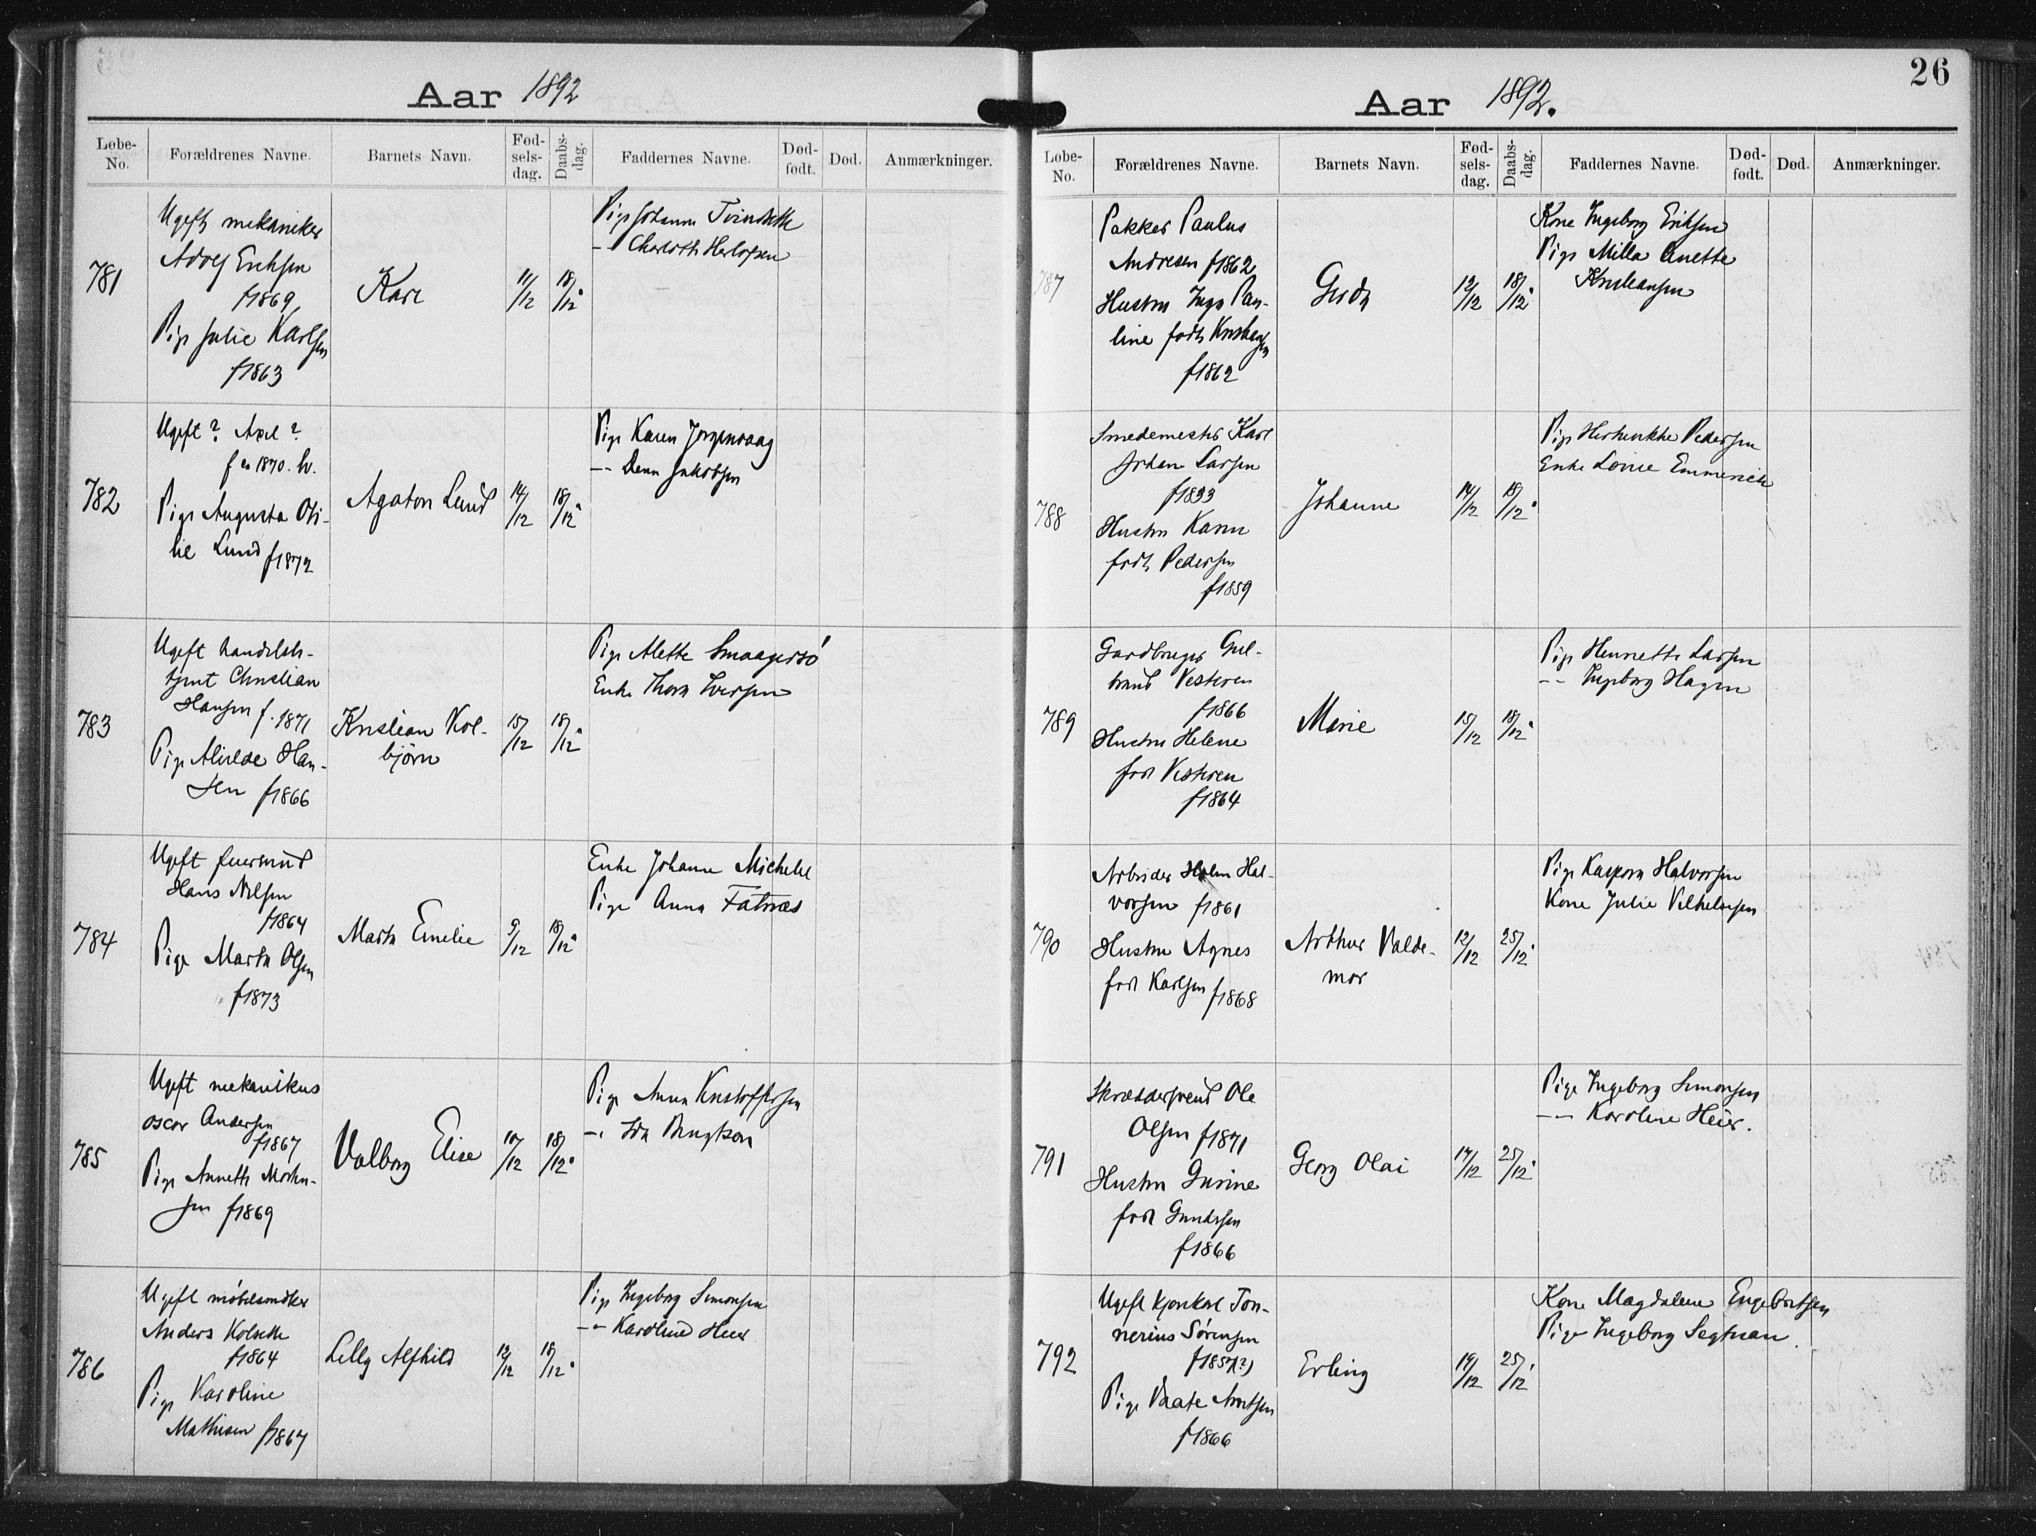 Aar 1892
Løbe-No. Forældrenes Navne. Barnets Navn. Fød-sels-dag. Daabs-dag. Faddernes Navne. Død-født. Død. Anmærkninger.
781
Ugift mekaniker
Adolf Eriksen
f1869
Pige Julie Karlsen
f1863
Karl
11/12
18/12
Pige Johanne
-- Charlotte
782
Ugift? Axel?
f ca 1870. hv.
Pige Augusta Oti-
lie Lund f1872
Agaton Lund
14/12
18/12
Pige Karen
--
783
Ugift handels-
Christian
Hansen f. 1871
Pige Alvilde Han-
sen f1866
Kristian Kol-
bjørn
15/12
18/12
Pige Alette
Enke Thora Iversen
784
Ugift
Hans Nilsen
f1864
Pige Marta Olsen
f1873
Marta Emelie
9/12
18/12
Enke Johanne
Pige Anna
785
Ugift mekanikus
Oscar Andersen
f1867
Pige Annette Morten-
sen f1869
Valborg Elise
10/12
18/12
Pige Anna Kristoffersen
-- Ida
786
Ugift
Anders
f1864
Pige Karoline
Mathisen f1867
Lilly Alfhild
12/12
18/12
Pige Ingeborg Simonsen
-- Karoline Heier
26
Aar 1892.
Løbe-No. Forældrenes Navne. Barnets Navn. Fød-sels-dag. Daabs-dag. Faddernes Navne. Død-født. Død. Anmærkninger.
787
Pakker Paulus
Andresen f1862
Hustru Inga Pau-
line født
f1862
Gerda
12/12
18/12
Kone Ingeborg Eriksen
Pige Milla Anette
Kristiansen
788
Smedemester Karl
Johan Larsen
Hustru Karen
født Pedersen
f1859
Johanne
14/12
18/12
Pige Pedersen
Enke Lovise Emmerich
789
Gaardbruger Gul-
brand Vesteren
f1866
Hustru Helene
født Vesteren
f1864
Marie
15/12
18/12
Pige Henriette Larsen
-- Ingeborg Hagen
790
Arbeider Hal-
vorsen f1861
Hustru Agnes
født Karlsen f1868
Arthur Valde-
mar
12/12
25/12
Pige Kaspara Halvorsen
Kone Julie Vilhelmsen
791
Skræddersvend Ole
Olsen f1871
Hustru Gurine
født Gundersen
f1866
Georg Olai
14/12
25/12
Pige Ingeborg Simonsen
-- Karoline Heier.
792
Ugift Ton-
nerius Sørensen
f1857(?)
Pige
f1866
Erling
19/12
25/12
Kone Magdalene Engebretsen
Pige Ingeborg